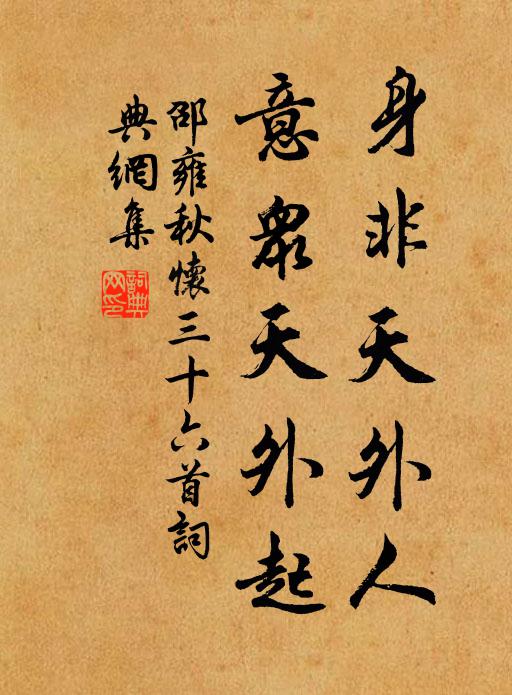 身非天外人
意眾天外起
邵雍秋懷三十六首詞
典網集
詞典網印